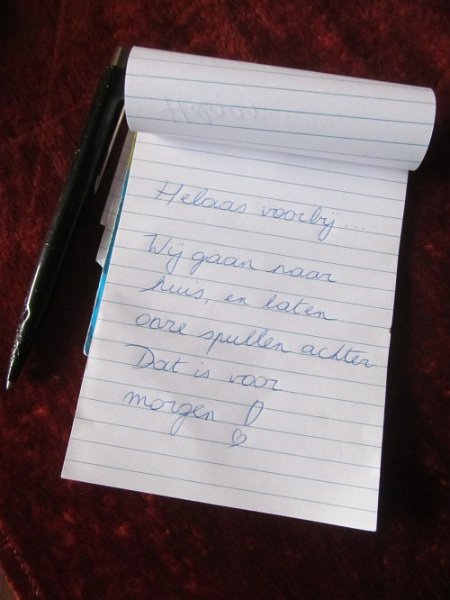 Helaas voorbij...
Wij gaan naar
huis, en laten
onze spullen achter.
Dat is voor
morgen !